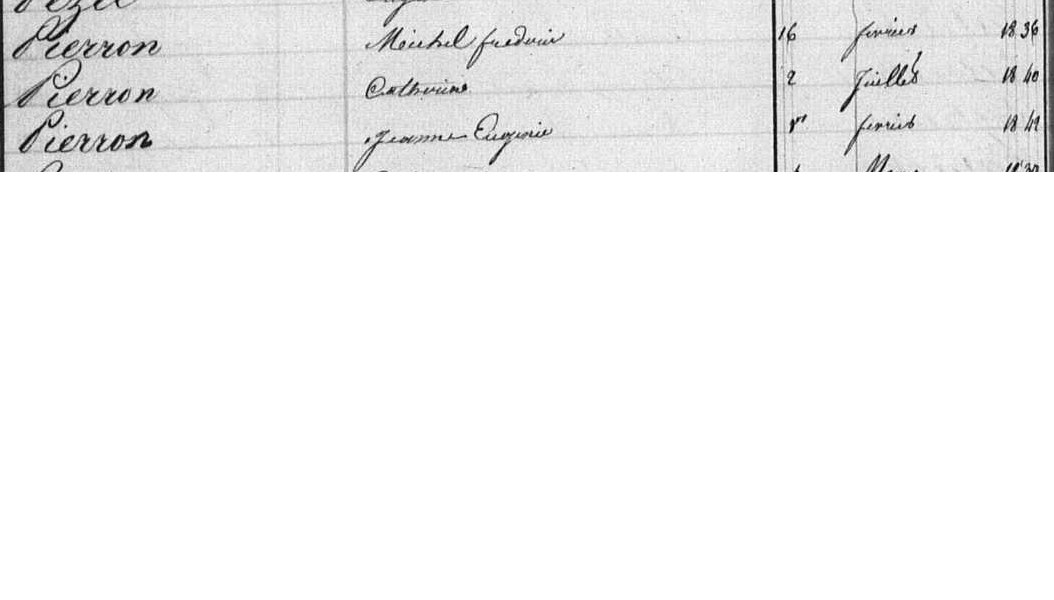 Pierron Michel frederic 16 fevrier 1836
Pierron Catherine 2 Juillet 1840
Pierron Jeanne Eugenie 1er fevrier